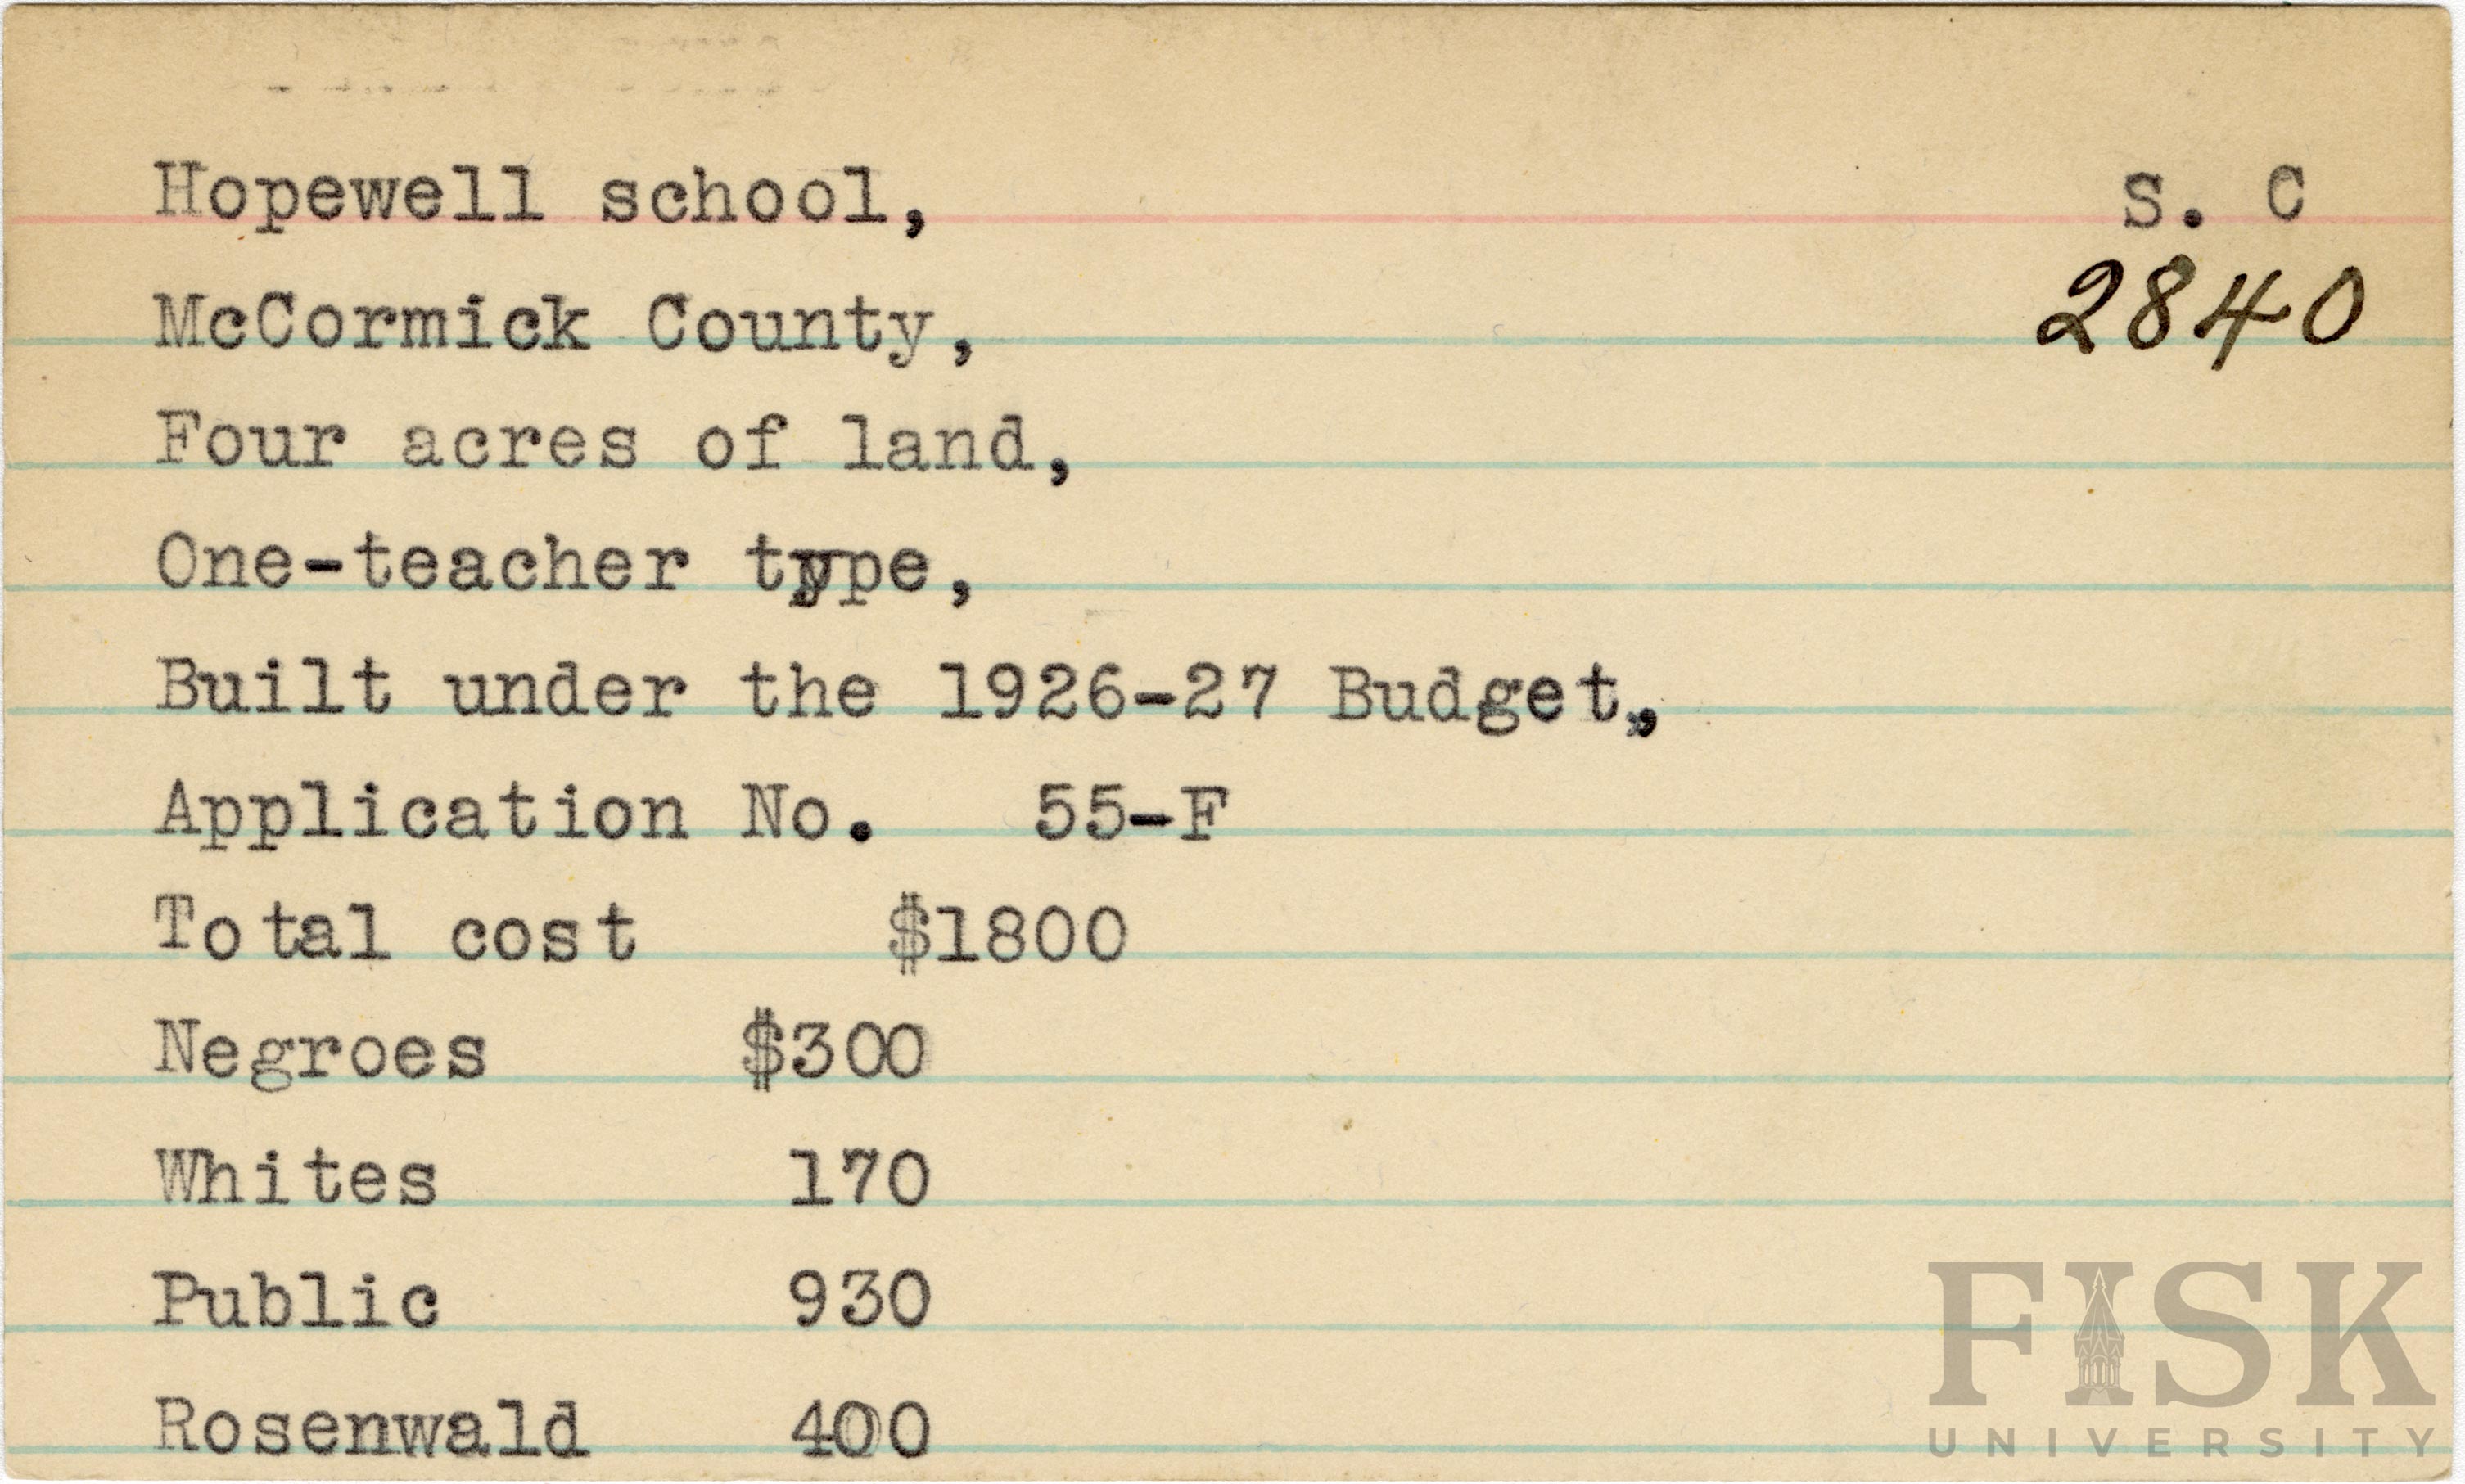 Hopewell school, S. C
2840
McCormick County,
Four acres of land,
One-teacher type,
Built under the 1926-27 Budget,,
Application No. 55-F
Total cost $1800
Negroes $300
Whites 170
Public 930
Rosenwald 400
FISK
UNIVERSITY